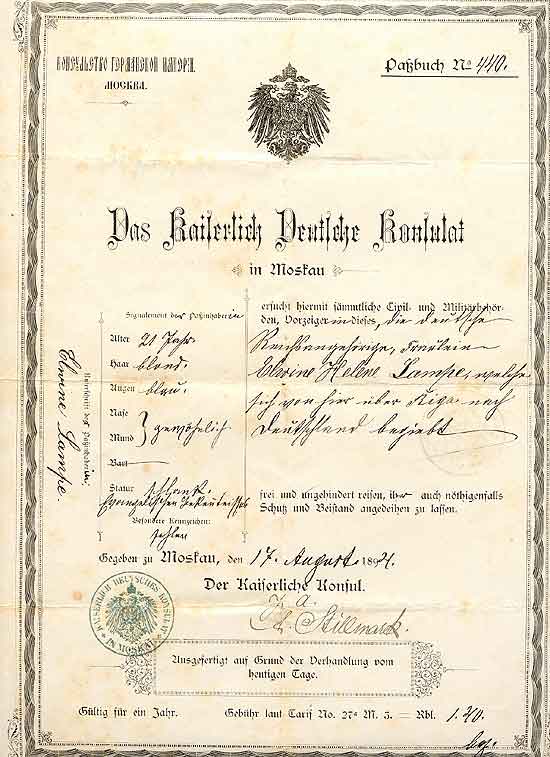 Консульство Германской Импер╕и.
Москва.
Paßbuch No 440.
Das Kaiserlich Deutsche Konsulat
in Moskau
Signalement des Paßinhaberin
Alter 21 Jahr.
Haar blond.
Augen blau.
Nase
Mund } gewöhnlich
Bart —
Statur schlank.
Evangelischen Bekentnisses
Besondere Kennzeichen:
fehlen
Unterschrift des Paßinhaberin:
Elwine Lampe.
ersucht hiermit sämmtliche Civil- und Militärbehör-
den, Vorzeigerin dieses, die deutsche
Reichsangehörige, Fräulein
Elwine Helene Lampe, welche
sich von hier über Riga nach
Deutschland begiebt
frei und ungehindert reisen, ihr auch nöthigenfalls
Schutz und Beistand angedeihen zu lassen.
Gegeben zu Moskau, den 17. August 1894.
Der Kaiserliche Konsul.
Stillmarck.
KAISERLICH DEUTSCHES KONSULAT
IN MOSKAU
Ausgefertigt auf Grund der Verhandlung vom
heutigen Tage.
Gültig für ein Jahr. Gebühr laut Tarif No. 27a M. 3. = Rbl. 1.40.